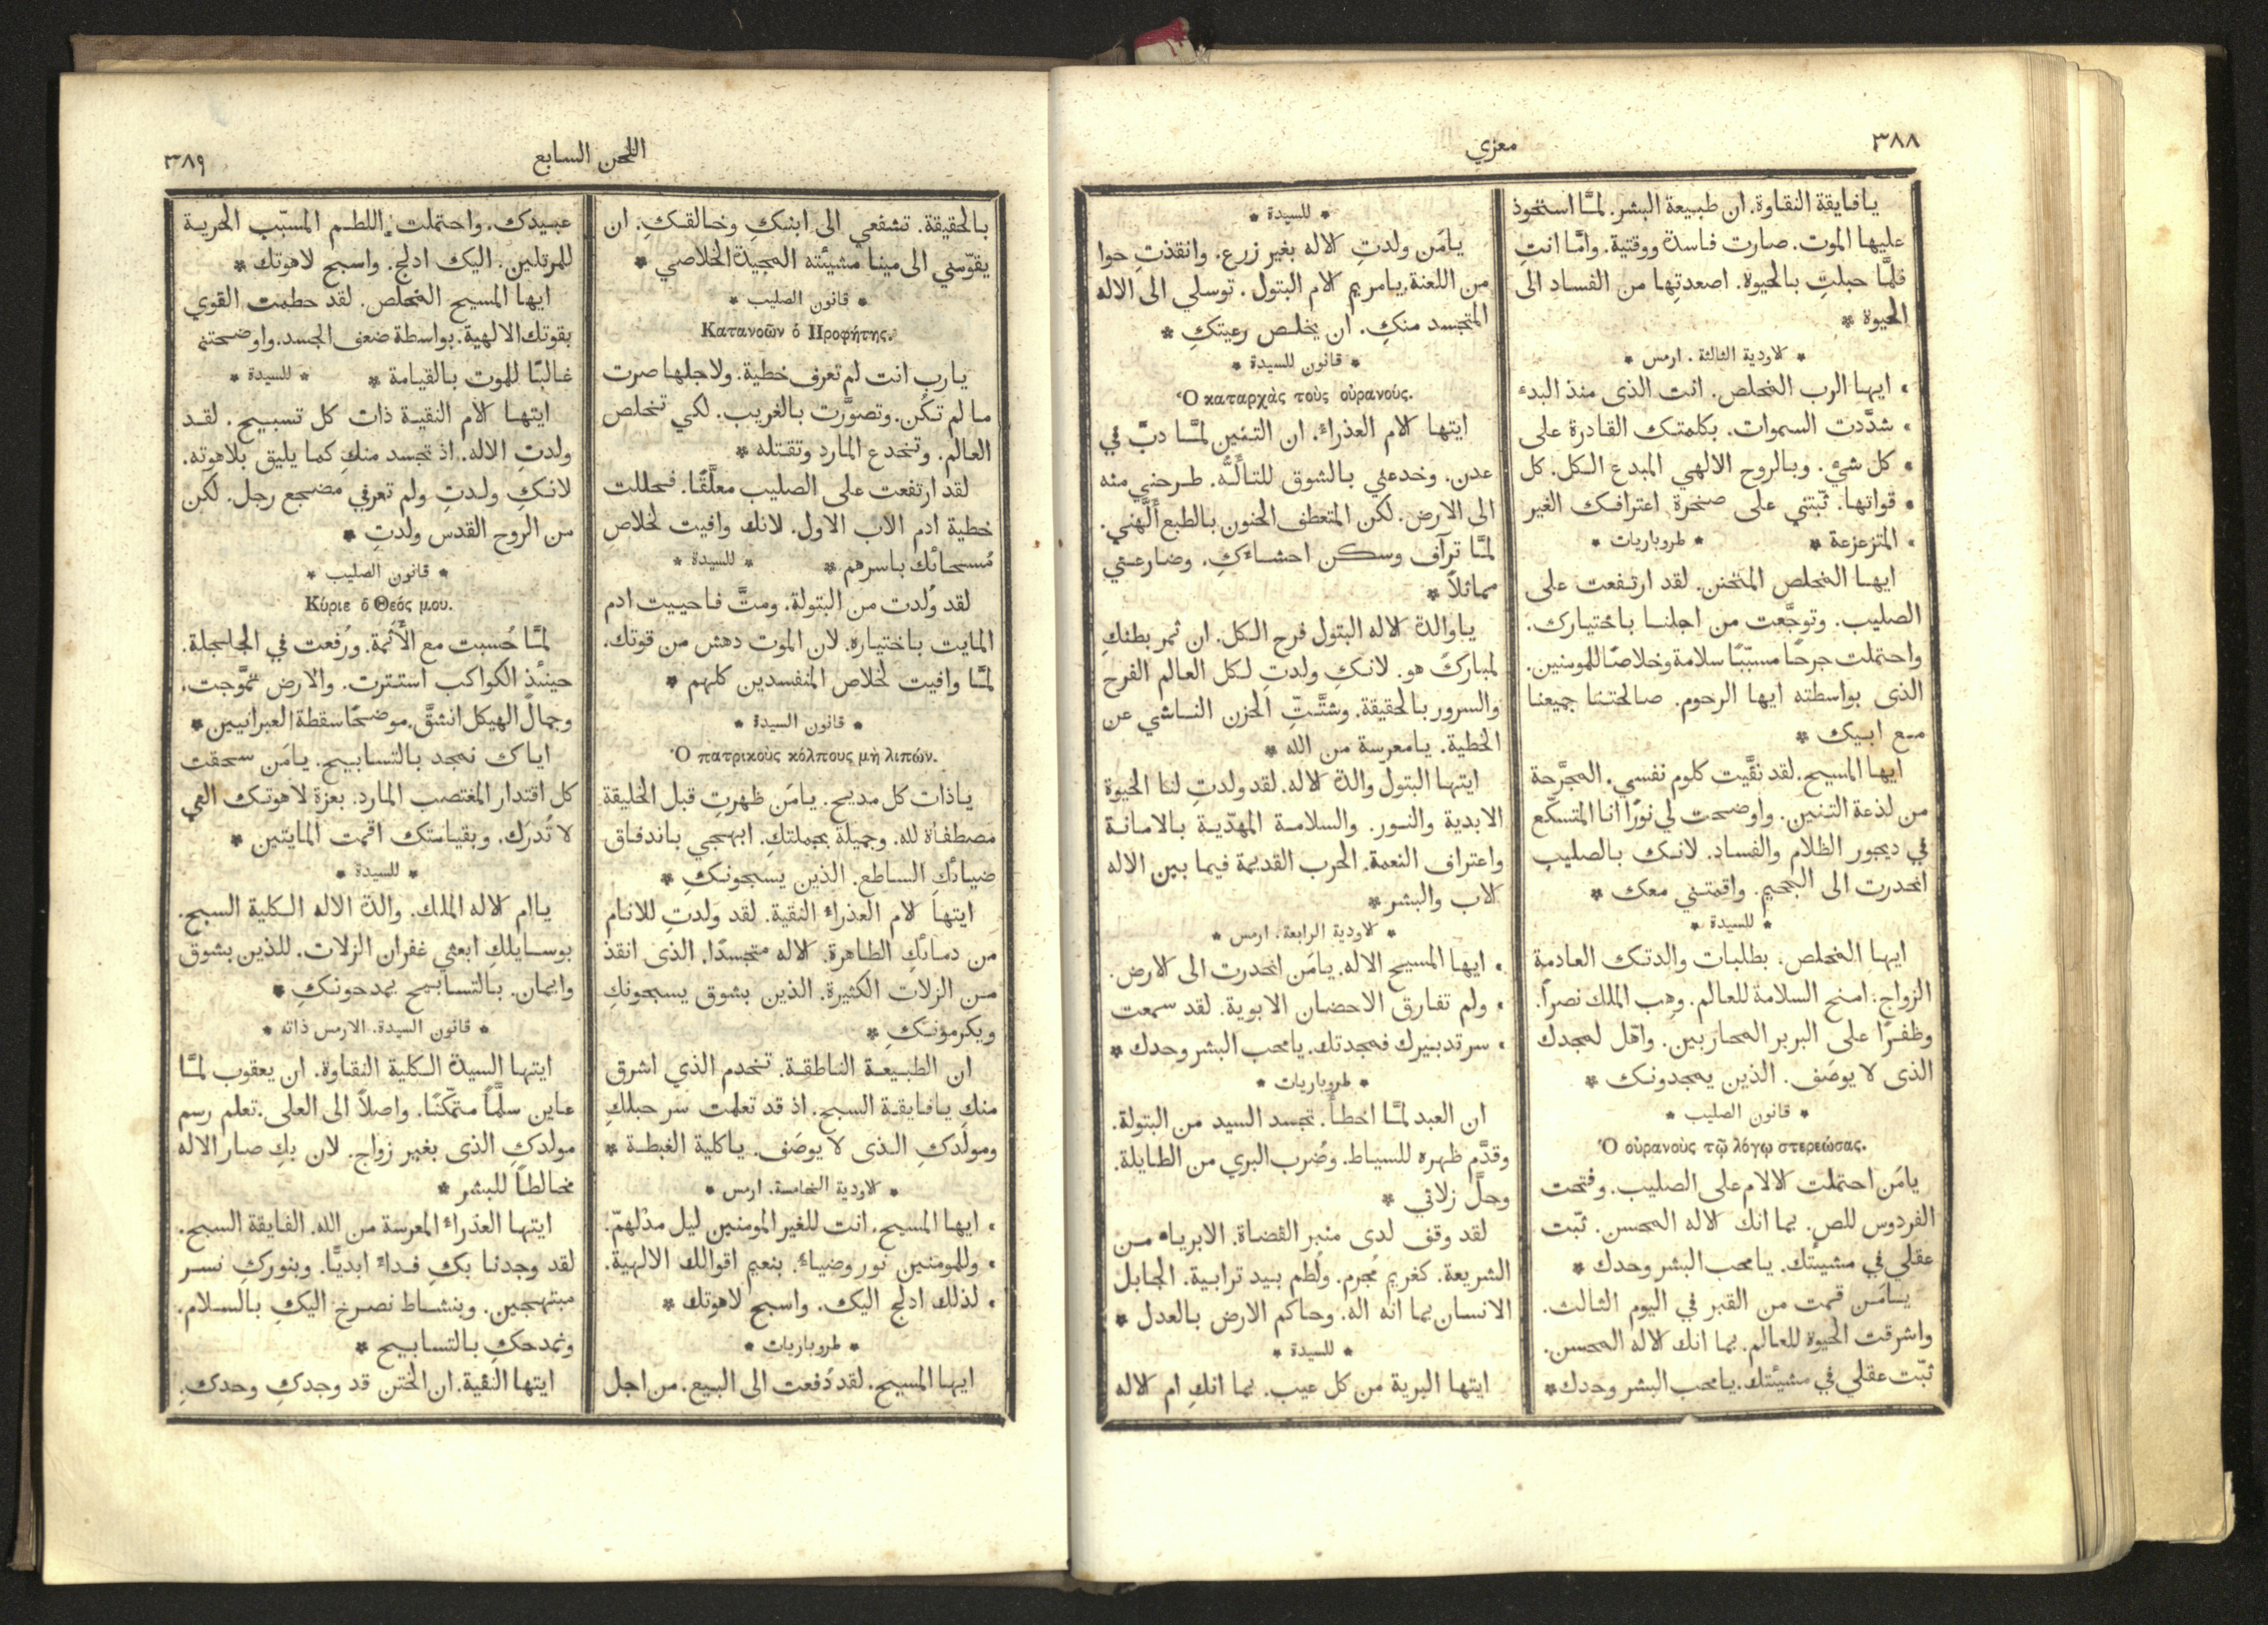 ٣٨٨
معزي
يافايقة النقاوة. ان طبيعة البشر. لمَّا استحوذ
عليها الموت. صارت فاسدة ووقتية. وامَّا انتِ
فلمَّا حبلتِ بالحيوة. اصعدتِها من الفساد الى
الحيوة *
* لاودية الثالثة. ارمس *
• ايها الرب المخلص. انت الذى منذ البدء
• شدَّدت السموات. بكلمتك القادرة على
• كل شيء. وبالروح الالهي المبدع الكل. كل
• قواتها. ثبتني على صخرة اعترافك الغير
• المتزعزعة * * طروباريات *
ايها المخلص المتحنن. لقد ارتفعت على
الصليب. وتوجَّعت من اجلنا باختيارك.
واحتملت جرحًا مسبّبًا سلامة وخلاصًا للمومنين.
الذى بواسطته ايها الرحوم. صالحتنا جميعنا
مع ابيك *
ايها المسيح. لقد نقَّيت كلوم نفسي. المجرَّحة
من لذعة التنين. واوضحت لي نورًا انا المتسكّع
في ديجور الظلام والفساد. لانك بالصليب
انحدرت الى الجحيم. واقمتني معك *
* للسيدة *
ايها المخلص. بطلبات والدتك العادمة
الزواج: امنح السلامة للعالم. وهِب الملك نصراً.
وظفرًا على البربر المحاربين. واهّل لمجدك
الذى لا يوصَف. الذين يمجدونك *
* قانون الصليب *
Ὁ οὐρανοὺς τῷ λόγῳ στερεώσας.
يامَن احتملت لالام على الصليب. وفتحت
الفردوس للص. بما انك لاله المحسن. ثبّت
عقلي في مشيئتك. يامحب البشر وحدك *
يامَن قمت من القبر في اليوم الثالث.
واشرقت الحيوة للعالم. بما انك لاله المحسن.
ثبّت عقلي في مشيئتك. يامحب البشر وحدك *
* للسيدة *
يامَن ولدتِ لاله بغير زرع. وانقذتِ حوا
من اللعنة. يامريم لام البتول. توسلي الى الاله
المتجسد منكِ. ان يخلص رعيتكِ *
* قانون للسيدة *
Ὁ καταρχὰς τοὺς οὐρανούς.
ايتها لام العذراءُ. ان التنين لمَّا دبَّ في
عدن. وخدعني بالشوق للتألُّه. طرحني منه
الى الارض. لكن المتعطف الحنون بالطبع ألَّهني.
لمَّا ترآف وسكن احشاءَكِ. وضارعني
مماثلاً *
ياوالدة لاله البتول فرح الكل. ان ثمر بطنكِ
لمباركٌ هو. لانكِ ولدتِ لكل العالم الفرح
والسرور بالحقيقة. وشتَّتِّ الحزن الناشي عن
الخطية. يامعرسة من الله *
ايتها البتول والدة لاله. لقد ولدتِ لنا الحيوة
الابدية والنور. والسلامة المهدّية بالامانة
واعتراف النعمة. الحرب القديمة فيما بين الاله
لاب والبشر *
* لاودية الرابعة. ارمس *
• ايها المسيح الاله. يامَن انحدرت الى لارض.
• ولم تفارق الاحضان الابوية. لقد سمعت
• سر تدبيرك فمجدتك. يامحب البشر وحدك *
* طروباريات *
ان العبد لمَّا اخطأَ. تجسد السيد من البتولة.
وقدَّم ظهره للسياط. وضُرب البري من الطايلة.
وحلَّ زلاتي *
لقد وقف لدى منبر القضاة. الابرياء من
الشريعة. كغريم مُجرم. ولُطم بيد ترابية. الجابل
الانسان بما انه اله. وحاكم الارض بالعدل *
* للسيدة *
ايتها البرية من كل عيب. بما انكِ ام لاله
اللحن السابع
٣٨٩
بالحقيقة. تشفعي الى ابنكِ وخالقكِ. ان
يقوّسني الى مينا مشيئته المجيدة الخلاصي *
* قانون الصليب *
Κατανοῶν ὁ Προφήτης.
يارب انت لم تعرف خطية. ولاجلها صرت
ما لم تكُن. وتصوَّرت بالغريب. لكي تخلص
العالم. وتخدع المارد وتقتله *
لقد ارتفعت على الصليب معلَّقًا. فحللت
خطية ادم الاب الاول. لانك وافيت لخلاصِ
مُسحائك باسرهم * * للسيدة *
لقد وُلدت من البتولة. ومتَّ فاحييت ادم
المايت باختياره. لان الموت دهش من قوتك.
لمَّا وافيت لخلاص المنفسدين كلهم *
* قانون السيدة *
Ὁ πατρικοὺς κόλπους μὴ λιπών.
ياذات كل مديح. يامَن ظهرتِ قبل الخليقة
مصطفاة لله. وجميلة بجملتكِ. ابهجي باندفاق
ضيائكِ الساطع. الذين يسبحونكِ *
ايتها لام العذراءُ النقية. لقد ولدتِ للانام
من دمائكِ الطاهرة. لاله متجسدًا. الذى انقذ
من الزلات الكثيرة. الذين بشوق يسبحونكِ
ويكرمونكِ *
ان الطبيعة الناطقة. تخدم الذي اشرق
منكِ يافايقة السبح. اذ قد تعلمت سر حبلكِ
ومولدكِ الذى لا يوصَف. ياكلية الغبطة *
* لاودية الخامسة. ارمس *
• ايها المسيح. انت للغير المومنين ليل مدلهمّ.
• وللمومنين نور وضياءُ. بنعيم اقوالك الالهية.
• لذلك ادلج اليك. واسبح لاهوتك *
* طروباريات *
ايها المسيح. لقد دُفعت الى البيع. من اجل
عبيدك. واحتملت اللطم المسبّب الحرية
للمرتلين. اليك ادلج. واسبح لاهوتك *
ايها المسيح المخلص. لقد حطمت القوي
بقوتك الالهية. بواسطة ضعف الجسد. واوضحتني
غالبًا للموت بالقيامة * * للسيدة *
ايتها لام النقية ذات كل تسبيح. لقد
ولدتِ الاله. اذ تجسد منكِ كما يليق بلاهوته.
لانكِ ولدتِ ولم تعرفي مضجع رجل. لكن
من الروح القدس ولدتِ *
* قانون الصليب *
Κύριε ὁ Θεός μου.
لمَّا حُسبت مع الأَثمة. ورُفعت في الجلجلة.
حينئذٍ الكواكب استترت. والارض تموَّجت.
وجمال الهيكل انشقَّ. موضحًا سقطة العبرانيين *
اياك نمجد بالتسابيح. يامَن سحقت
كل اقتدار المغتصب المارد. بعزة لاهوتك التي
لا تُدرَك. وبقيامتك اقمت المايتين *
* للسيدة *
ياام لاله الملك. والدة الاله الكلية السبح.
بوسايلكِ ابعثي غفران الزلات. للذين بشوق
وايمان. بالتسابيح يمدحونكِ *
* قانون السيدة. الارمس ذاته *
ايتها السيدة الكلية النقاوة. ان يعقوب لمَّا
عاين سلَّماً متمكّنًا. واصلاً الى العلى. تعلم رسم
مولدكِ الذى بغير زواج. لان بكِ صار الاله
مخالطاً للبشر *
ايتها العذراءُ المعرسة من الله. الفايقة السبح.
لقد وجدنا بكِ فداءً ابديًّا. وبنوركِ نسر
مبتهجين. وبنشاط نصرخ اليكِ بالسلام.
ونمدحكِ بالتسابيح *
ايتها النقية. ان الختن قد وجدكِ وحدكِ.